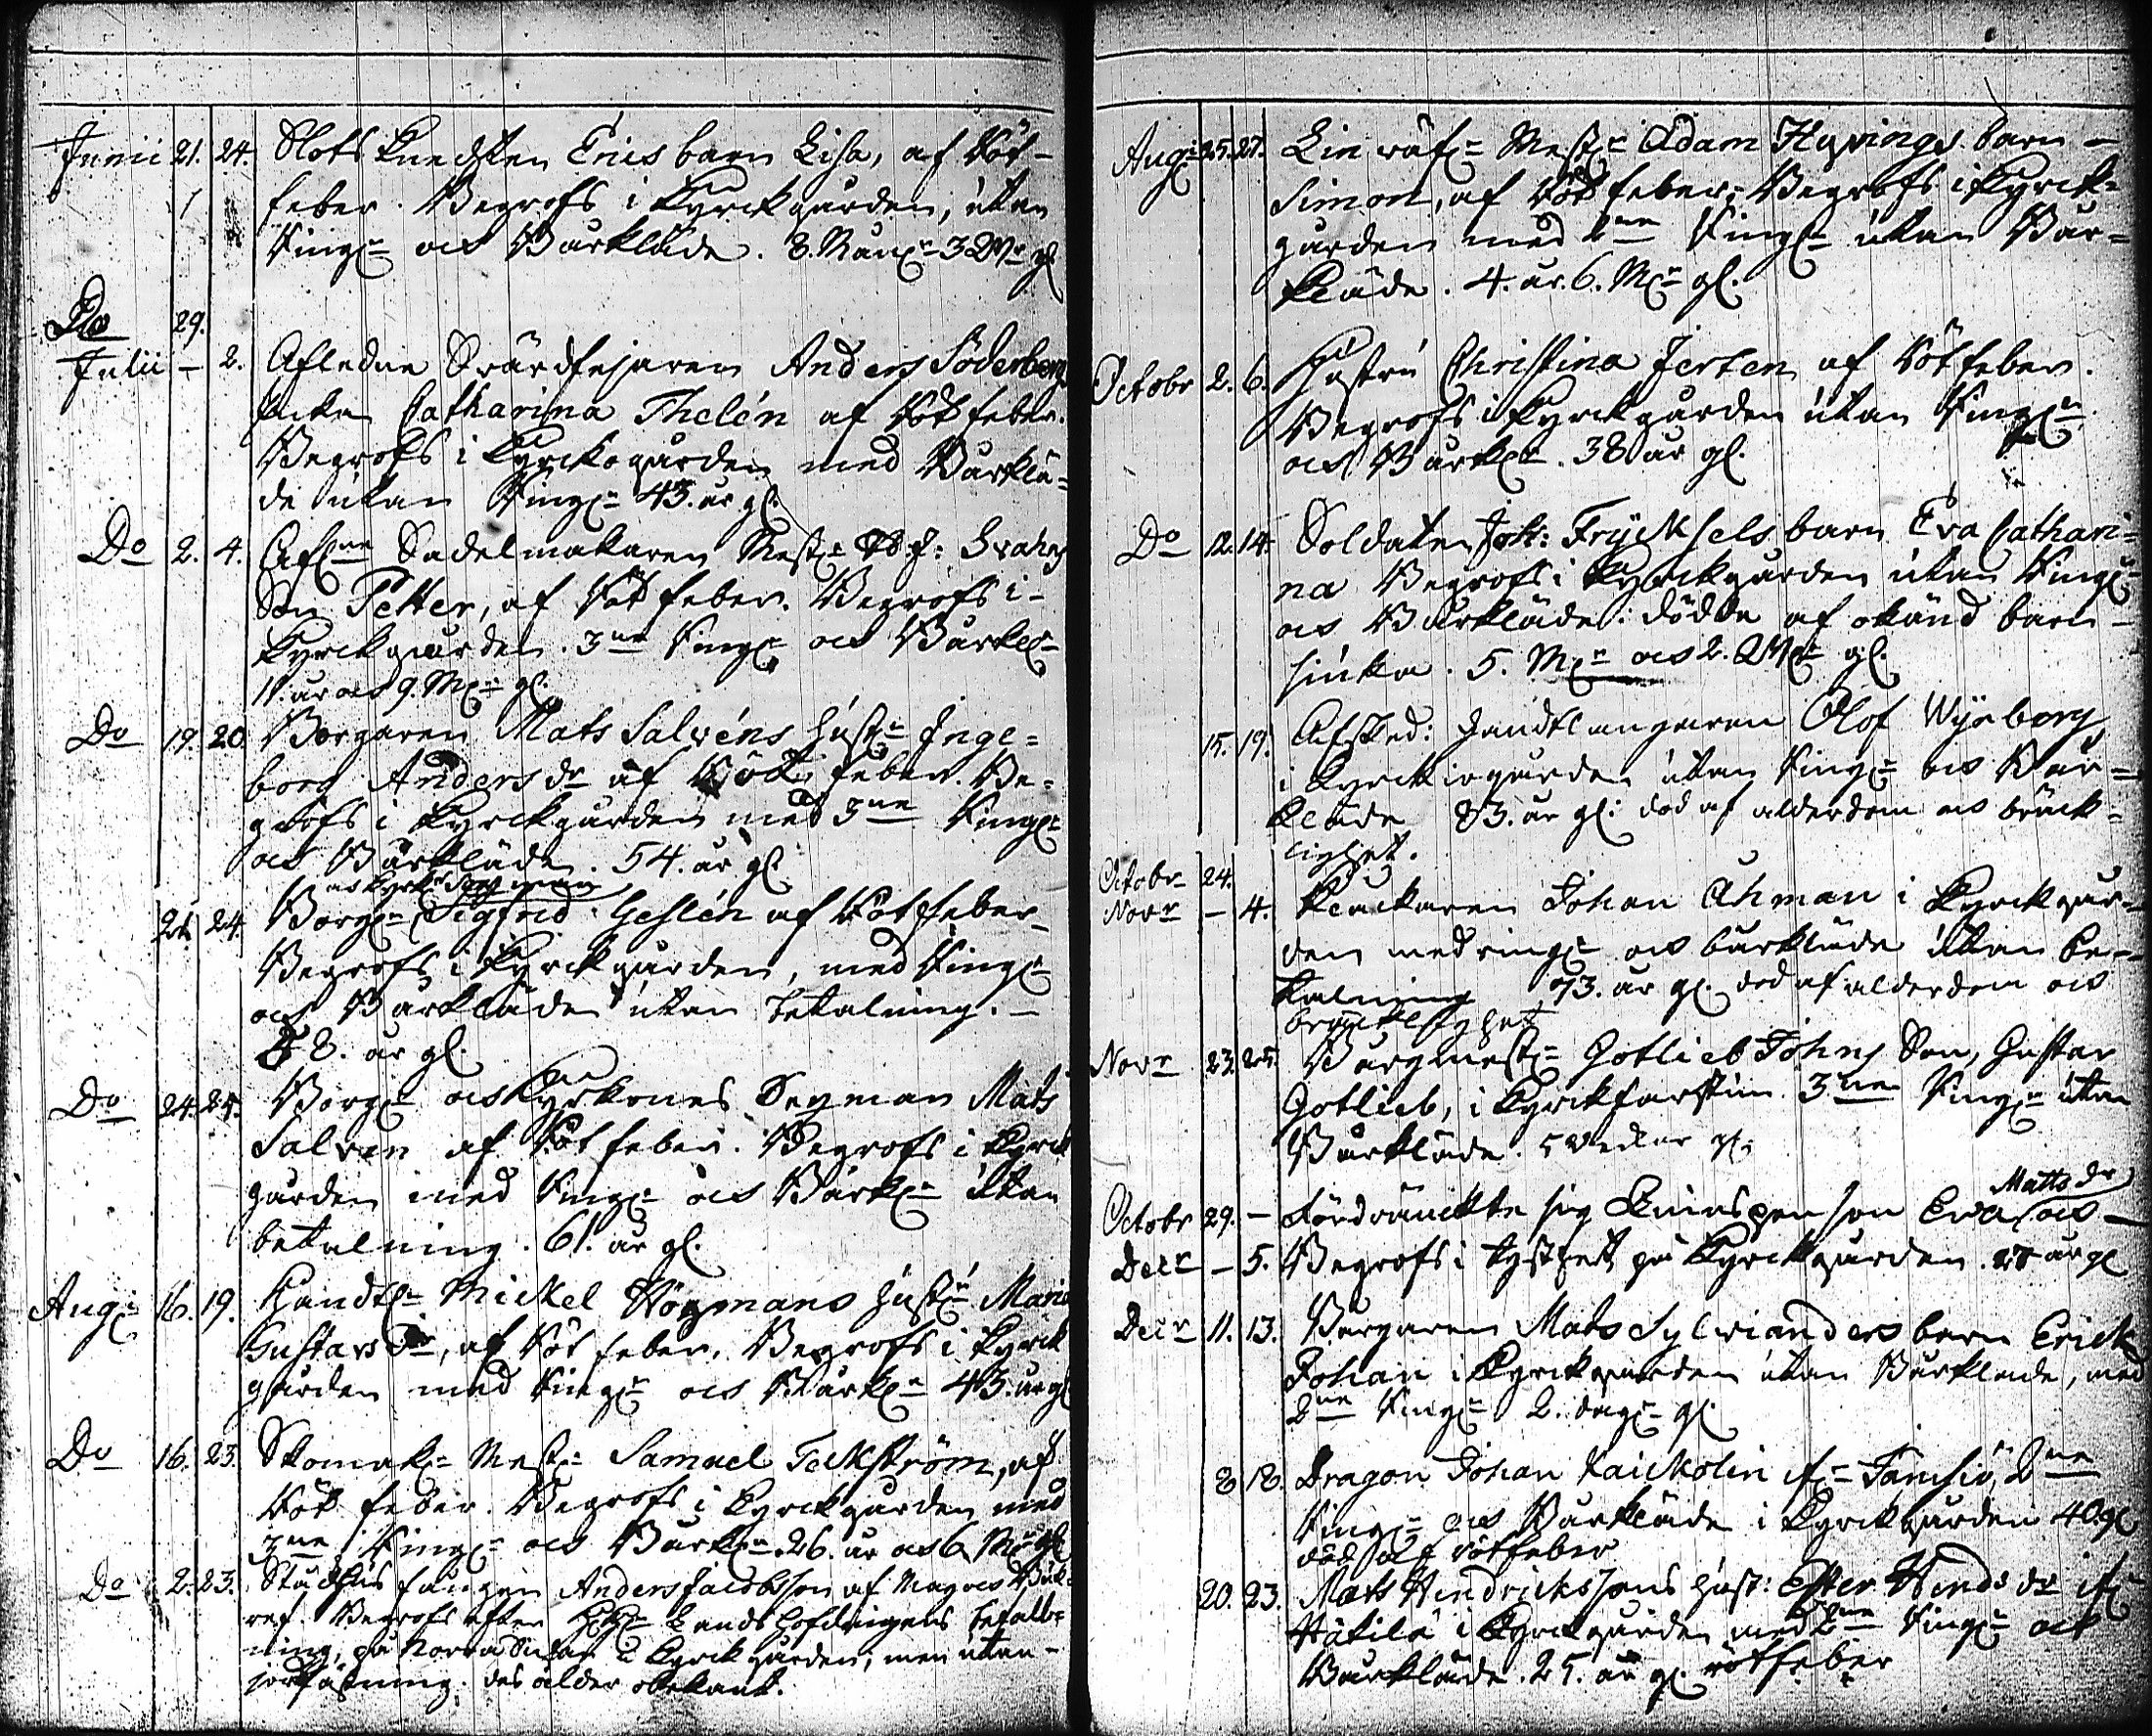 Junii 21. 24. Slots Knechten Erics barn Lisa, af Röt-
feber. Begrofs i Kyrckgården, utan
Ringn: och Bårkläde. 8. Mån: 3 W: gl
Do 29.
Julii - 2. Afledne Svärdfejaren Anders Söderberg
Encka Catharina Thelén af Rötfeber.
Begrofs i Kyrckogården med Bårklä=
de utan Ringn: 43. år gl.
Do 2. 4. Afl:ne Sadelmakaren Mest: Svahns
Son Petter, af Rötfeber. Begrofs i-
Kyrckgården. 3ne Ringn: och Bårkl:
11. år och 9. M: gl.
Do 19. 20. Borgaren Mats Salvéns Hustr: Inge=
borg Andersdr af Rötfeber. Be=
grofs i Kyrckgården med 3ne Ringn:
och Bårkläde. 54. år gl.
och Kyrk:
21. 24. Borg: Sigfrid Geslén af Rötfeber
Begrofs i Kyrckgården, med Ringn:
och Bårkläde utan betalning.-
8. år gl.
Do 24. 25. Borg: och Kyrkones Segman Mats
Salven af Rötfeber. Begrofs i Kyrck
gården med Ringn: och Bårkl: utan
betalning. 61. år gl.
Aug: 16. 19. Handl: Mickel Högmans Hustru Maria
Gustavs Dr, af Rötfeber. Begrofs i Kyrck
gården med Ringn: och Bårkl: 43. år gl
Do 16. 23. Skomak: Mest: Samuel Teckström, af
Röt feber. Begrofs i Kyrckgården med
3ne Ringn: och Bårkl: 26. år och 6 M: gl
Do 2. 23. Stadshus fången Anders Jacobsson af
Begrofs efter H: Landshöfdingens befall=
ning, på Norra Sidan i Kyrckgården, men utan-
jordfästning. des ålder obekant.
Aug: 25. 27. Linväf: Mest: Adam Hyvings barn-
Simon, af Rötfeber. Begrofs i Kyrck=
gården med 2ne Ringn: utan Bår=
kläde. 4. år. 6. M: gl.
Octobr 2. 6. Hustru Christina Jerten af Rötfeber.
Begrofs i Kyrckgården utan Ringn:
och Bårkl: 38 år gl.
Do 12. 14. Soldaten Joh: Frycksels barn Eva Cathari=
na Begrofs i Kyrckgården utan Ringn:
och Bårkläde: dödde af okänd barn-
siuka. 5. M: och 2. W: gl.
15. 19. Afsked: Handtlangaren Olof Wijborg
i Kyrckiogården utan Ringn: och Bår=
kläde 83. år gl: död af ålderdom och bräck=
lighet.
Octobr 24.
Novr - 4. Klockaren Johan Åhman i Kyrckgår=
den med ringn: och bårkläde utan be-
talning 73. år gl. död af ålderdom och
bräcklighet
Novr 23. 25. Borgmest: Gotlieb Johns Son, Gustav
Gotlieb, i Kyrckfarstun. 3ne Ringn: utan
Bårkläde. 5 gl.
Matts dr
Octobr 29. - Fördränckte sig Qvinspersson Eva och-
Decr - 5. Begrofs i tysthet på Kyrckgården. 28 år gl
Decr 11. 13. Borgaren Mats Sylvianders barn Erick
Johan i Kyrckgården utan Bårkläde, med
2ne Ringn: 2. dag: gl.
8 18. Dragon Johan Kaickolin if: Tamsiö, 2ne
Ringn: och Bårkläde i Kyrckgården 40 gl
död af rötfeber
20. 23. Mats Hendrickssons Hust: Ester Hends dr if:
Hätilä i Kyrckgården med 2ne Ringn: och
Bårkläde. 25. år gl. rötfeber